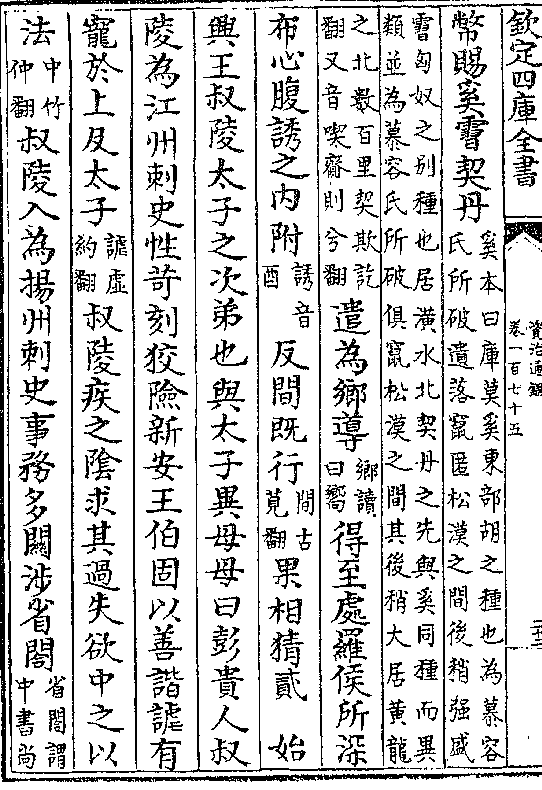 欽定四庫全書
資治通鑑
卷一百七十五
幣賜奚霫契丹
奚本曰庫莫奚東部胡之種也為慕容
氏所破遺落竄匿松漠之間後稍强盛
霫匈奴之别種也居潢水北契丹之先與奚同種而異
類並為慕容氏所破俱竄松漠之間其後稍大居黄龍
之北數百里契欺訖
翻又音喫齎則兮翻
遣為鄉導
鄉讀
曰嚮
得至處羅侯所深
布心腹誘之内附
誘音
酉
反間既行
間古
莧翻
果相猜貳 始
興王叔陵太子之次弟也與太子異母母曰彭貴人叔
陵為江州刺史性苛刻狡險新安王伯固以善諧謔有
寵於上及太子
謔虚
約翻
叔陵疾之隂求其過失欲中之以
法
中竹
仲翻
叔陵入為揚州刺史事務多闗涉省閤
省閤謂
中書尚